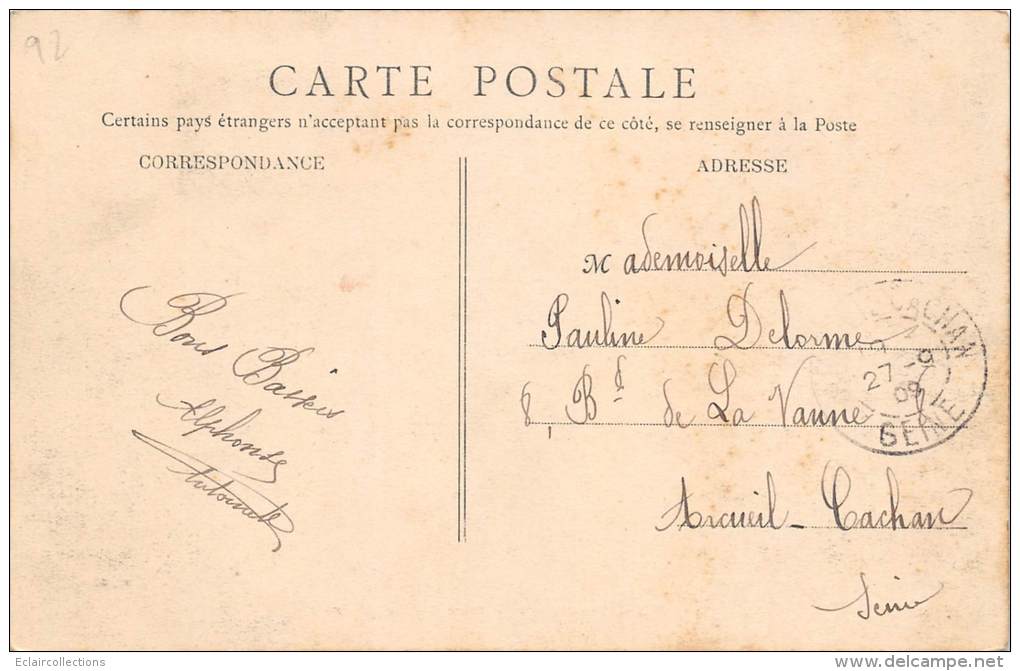 92
CARTE POSTALE
Certains pays étrangers n'acceptant pas la correspondance de ce côté, se renseigner à la Poste
CORRESPONDANCE
Bons Baisers
Alphonse
Antoinette
ADRESSE
Mademoiselle
Pauline Delorme
8, Bd de La Vanne
Arcueil-Cachan
Seine
CACHAN
27-9
09
SEINE
Eclaircollections
www.delcampe.net